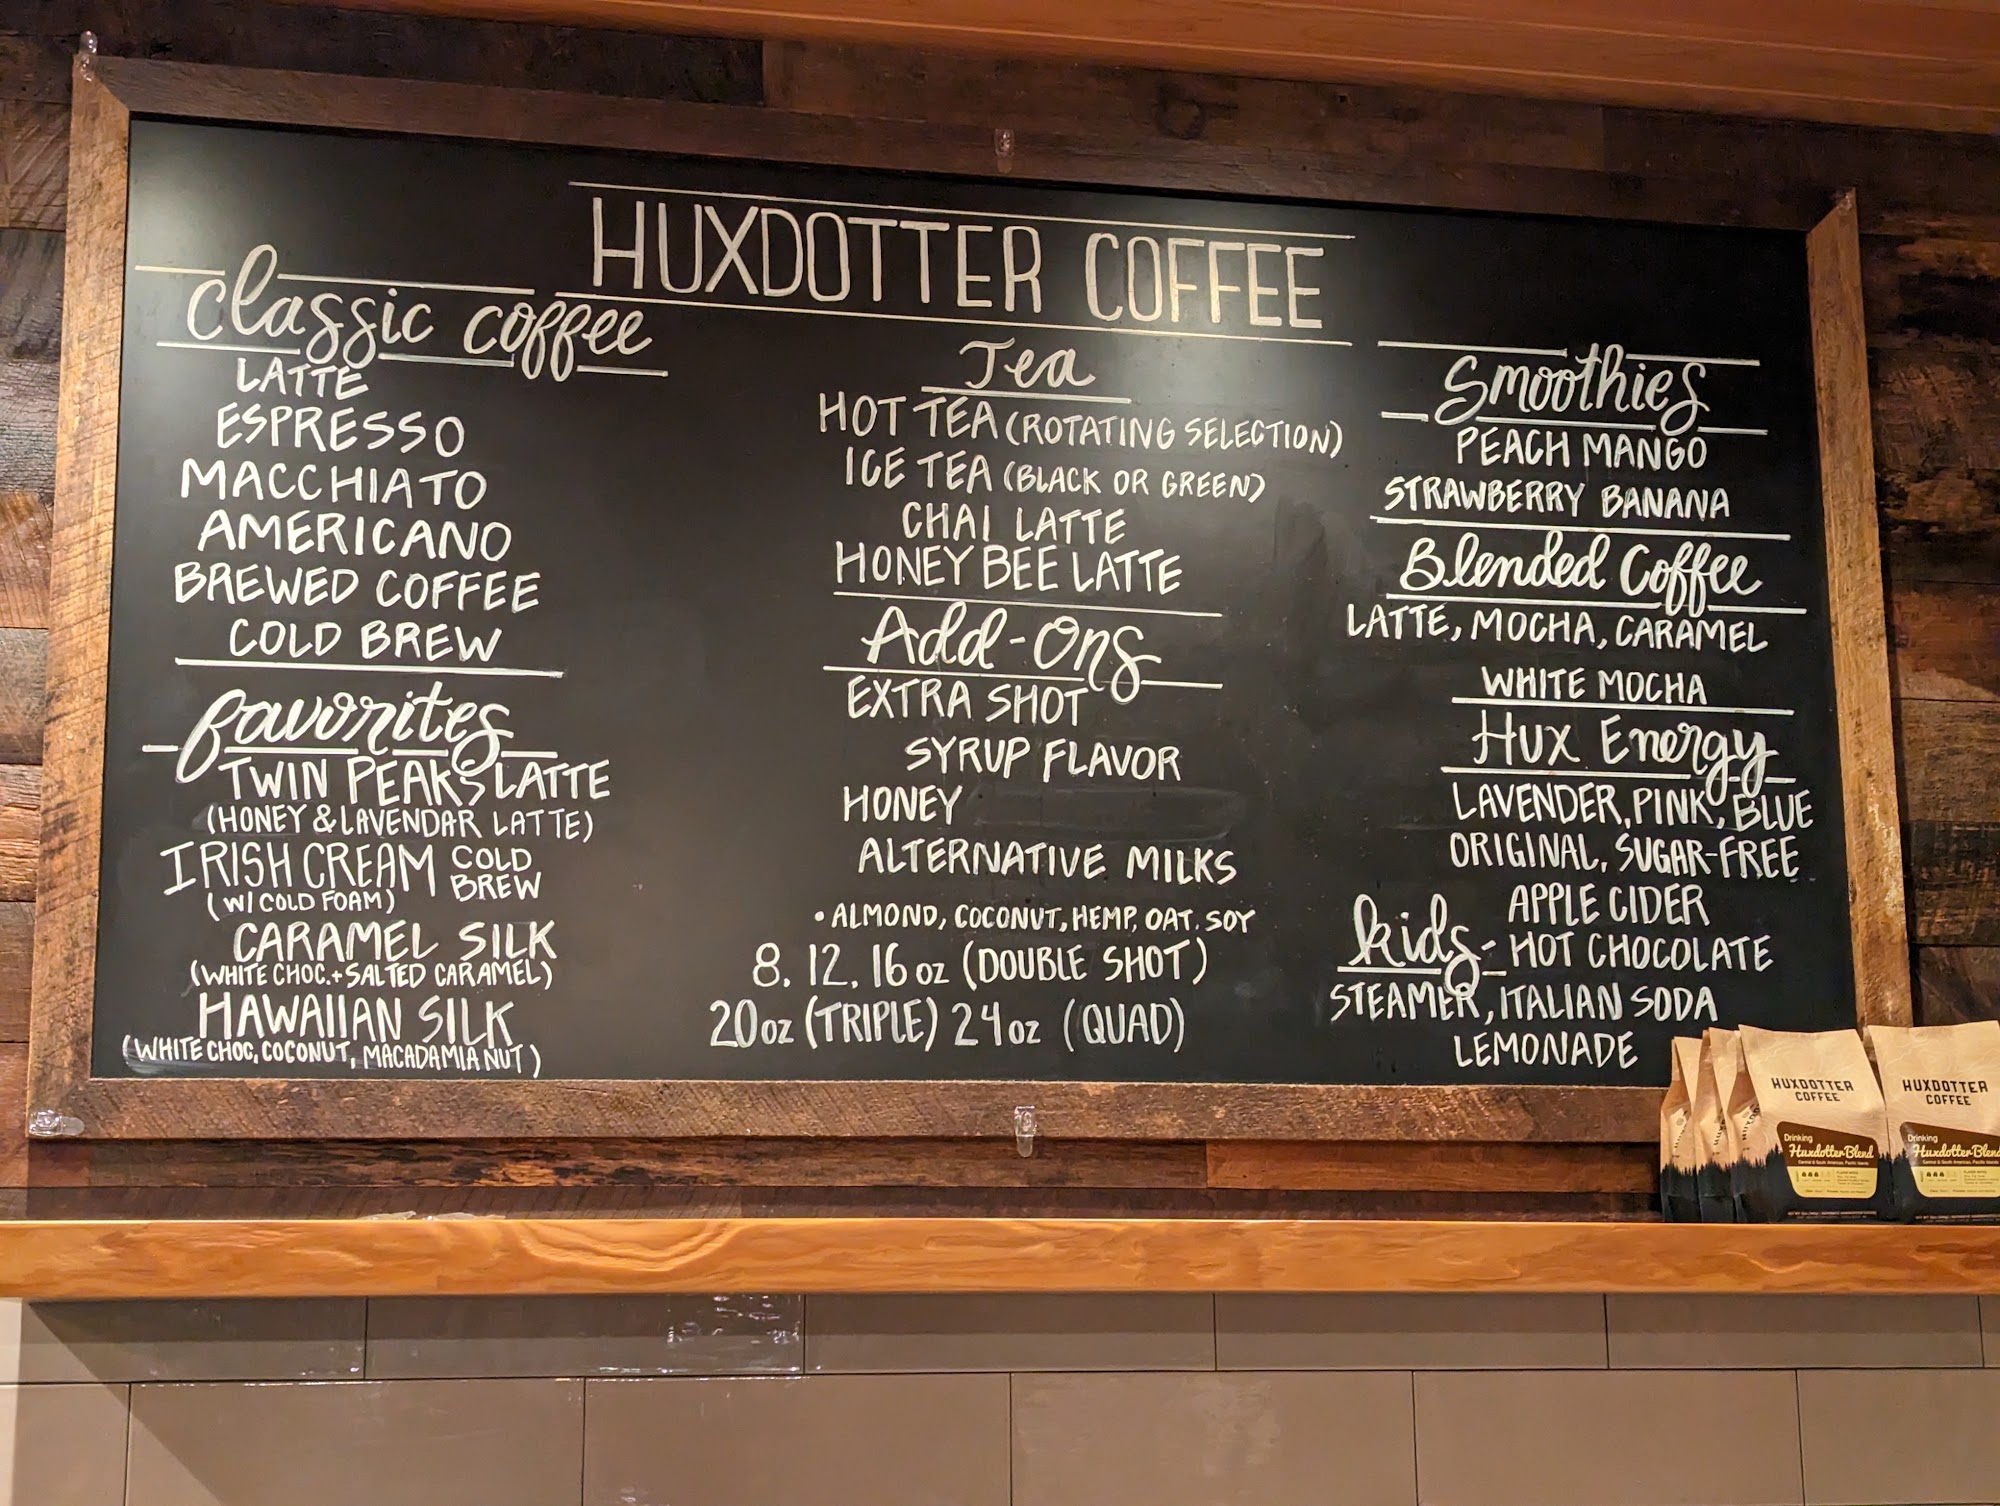 HUXDOTTER COFFEE
classic coffee
LATTE
ESPRESSO
MACCHIATO
AMERICANO
BREWED COFFEE
COLD BREW
favorites
TWIN PEAKS LATTE
(HONEY & LAVENDAR LATTE)
IRISH CREAM COLD BREW
(W/ COLD FOAM)
CARAMEL SILK
(WHITE CHOC.+SALTED CARAMEL)
HAWAIIAN SILK
(WHITE CHOC, COCONUT, MACADAMIA NUT)
Tea
HOT TEA (ROTATING SELECTION)
ICE TEA (BLACK OR GREEN)
CHAI LATTE
HONEY BEE LATTE
Add-Ons
EXTRA SHOT
SYRUP FLAVOR
HONEY
ALTERNATIVE MILKS
• ALMOND, COCONUT, HEMP, OAT. SOY
8. 12. 16 oz (DOUBLE SHOT)
20oz (TRIPLE) 24oz (QUAD)
Smoothies
PEACH MANGO
STRAWBERRY BANANA
Blended Coffee
LATTE, MOCHA, CARAMEL
WHITE MOCHA
Hux Energy
LAVENDER, PINK, BLUE
ORIGINAL, SUGAR-FREE
kids-
APPLE CIDER
HOT CHOCOLATE
STEAMER, ITALIAN SODA
LEMONADE
HUXDOTTER
COFFEE
Drinking
Huxdotter Blend
Central & South American, Pacific Islands
HUXDOTTER
COFFEE
Drinking
Huxdotter Blend